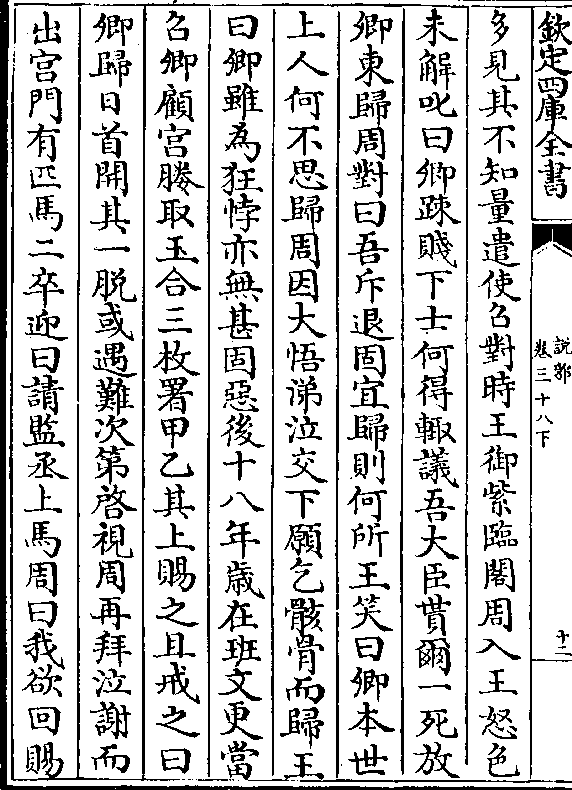 欽定四庫全書
說郛
卷三十八下
十二
多見其不知量遣使召對時王御紫臨閣周入王怒色
未解叱曰卿踈賤下士何得輙議吾大臣貰爾一死放
卿東歸周對曰吾斥退固宜歸則何所王笑曰卿本世
上人何不思歸周因大悟涕泣交下願乞骸骨而歸王
曰卿雖為狂悖亦無甚固惡後十八年歳在班文更當
召卿顧宫勝取玉合三枚署甲乙其上賜之且戒之曰
卿歸日首開其一脱或遇難次第啓視周再拜泣謝而
出宫門有匹馬二卒迎曰請監丞上馬周曰我欲回賜